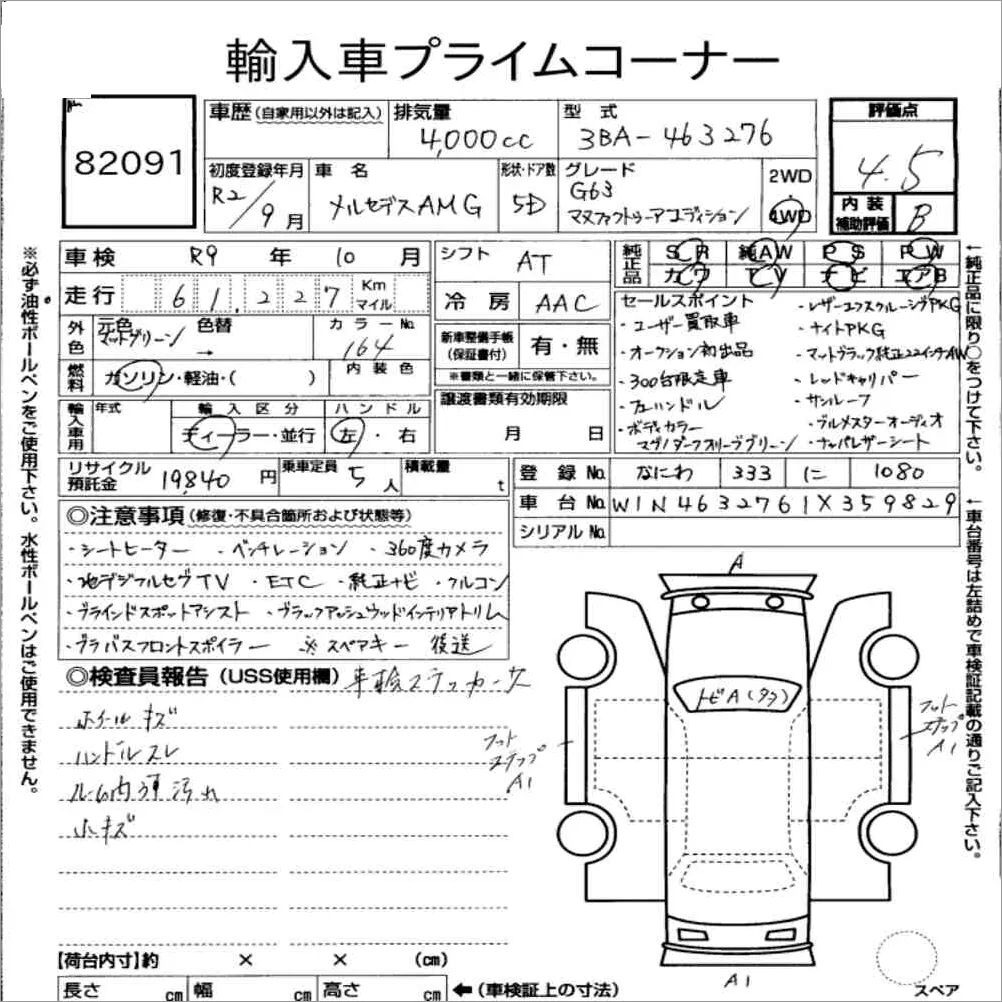 輸入車プライムコーナー
82091
車歴 (自家用以外は記入) 排気量 型式 評価点
4,000cc 3BA-463276 4.5
初度登録年月 車名 形状・ドア数 グレード 2WD 4WD
R2/9月 メルセデスAMG 5D G63
マヌファクトゥーアエディション
内装補助評価 B
車検 R9年 10月 シフト AT
純正品 SR 純AW PS PW
カワ TV ナビ エアB
走行 61,227 Km マイル
冷房 AAC
外色 元色 色替 カラーNo.
マットグリーン → 164
内装色
新車整備手帳(保証書付) 有・無
※書類と一緒に保管下さい。
燃料 ガソリン・軽油・( )
輸入車用 年式 輸入区分 ハンドル
ディーラー・並行 左・右
譲渡書類有効期限
月 日
セールスポイント
・ユーザー買取車
・オークション初出品
・300台限定車
・左ハンドル
・ボディカラー
マグノダークオリーブグリーン
・レザーエクスクルーシブPKG
・ナイトPKG
・マットブラック純正22インチAW
・レッドキャリパー
・サンルーフ
・ブルメスターオーディオ
・ナッパレザーシート
リサイクル預託金 19,840円 乗車定員 5人 積載量 t
登録No. なにわ 333 に 1080
車台No. W1N4632761X359829
シリアルNo.
◎注意事項 (修復・不具合箇所および状態等)
・シートヒーター ・ベンチレーション ・360度カメラ
・地デジフルセグTV ・ETC ・純正ナビ ・フルコン
・ブラインドスポットアシスト ・ブラックアッシュウッドインテリアトリム
・ブラバスフロントスポイラー ※スペアキー 後送
◎検査員報告 (USS使用欄) 車輪ステッカー欠
ホイールキズ
ハンドルスレ
ルーム内薄汚れ
小キズ
A
トビA(タヲ)
フットステップA1
フットステップA1
A1
スペア
【荷台内寸】約 × × (cm)
長さ cm 幅 cm 高さ cm ←(車検証上の寸法)
※必ず油性ボールペンをご使用下さい。水性ボールペンはご使用できません。
←純正品に限り○をつけて下さい。
←車台番号は左詰めで車検証記載の通りご記入下さい。